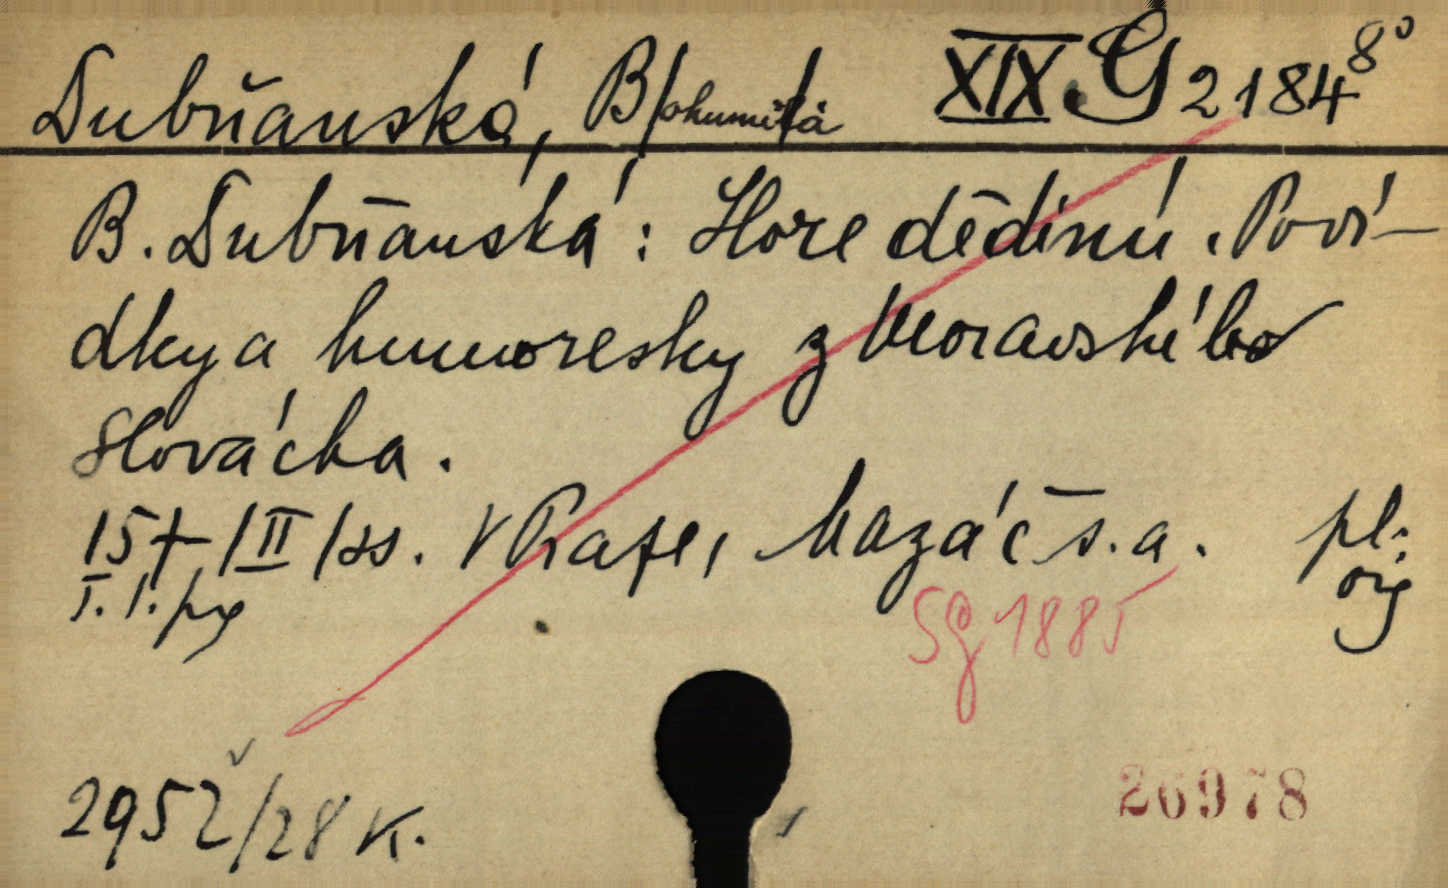 Dubňanská, B/ohumila/ XIX G 2184 8°
B. Dubňanská: Hore dědinú. Poví-
dky a humoresky z Moravského
Slovácka.
15+ /II/ ss. V Praze, Mazáč s.a. pl:
I. 1. orig
Sg 1885
2952/28 K.
26978